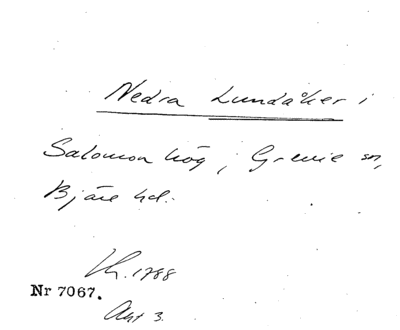 Nedra Lundåker i
Salomonhög, Grevie sn,
Bjäre hd.
Lh. 1788
Nr 7067.
Akt 3.